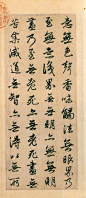 意無色聲香味觸法無眼界乃
至無意識界無無明亦無無明
盡乃至無老死亦無老死盡無
苦集滅道無智亦無得以無所